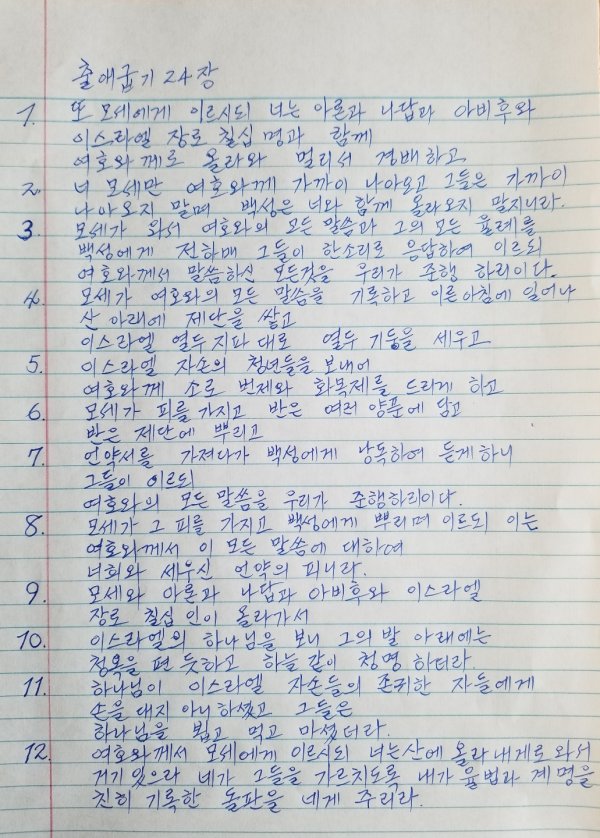 출애굽기 24장
1. 또 모세에게 이르시되 너는 아론과 나답과 아비후와
이스라엘 장로 칠십 명과 함께
여호와께로 올라와 멀리서 경배하고
2. 너 모세만 여호와께 가까이 나아오고 그들은 가까이
나아오지 말며 백성은 너와 함께 올라오지 말지니라.
3. 모세가 와서 여호와의 모든 말씀과 그의 모든 율례를
백성에게 전하매 그들이 한소리로 응답하여 이르되
여호와께서 말씀하신 모든것을 우리가 준행 하리이다.
4. 모세가 여호와의 모든 말씀을 기록하고 이른 아침에 일어나
산 아래에 제단을 쌓고
이스라엘 열두 지파 대로 열두 기둥을 세우고
5. 이스라엘 자손의 청년들을 보내어
여호와께 소로 번제와 화목제를 드리게 하고
6. 모세가 피를 가지고 반은 여러 양푼에 담고
반은 제단에 뿌리고
7. 언약서를 가져다가 백성에게 낭독하여 듣게하니
그들이 이르되
여호와의 모든 말씀을 우리가 준행하리이다.
8. 모세가 그 피를 가지고 백성에게 뿌리며 이르되 이는
여호와께서 이 모든 말씀에 대하여
너희와 세우신 언약의 피니라.
9. 모세와 아론과 나답과 아비후와 이스라엘
장로 칠십 인이 올라가서
10. 이스라엘의 하나님을 보니 그의 발 아래에는
청옥을 편 듯하고 하늘 같이 청명 하더라.
11. 하나님이 이스라엘 자손들의 존귀한 자들에게
손을 대지 아니하셨고 그들은
하나님을 뵙고 먹고 마셨더라.
12. 여호와께서 모세에게 이르시되 너는 산에 올라 내게로 와서
거기 있으라 네가 그들을 가르치도록 내가 율법과 계명을
친히 기록한 돌판을 네게 주리라.